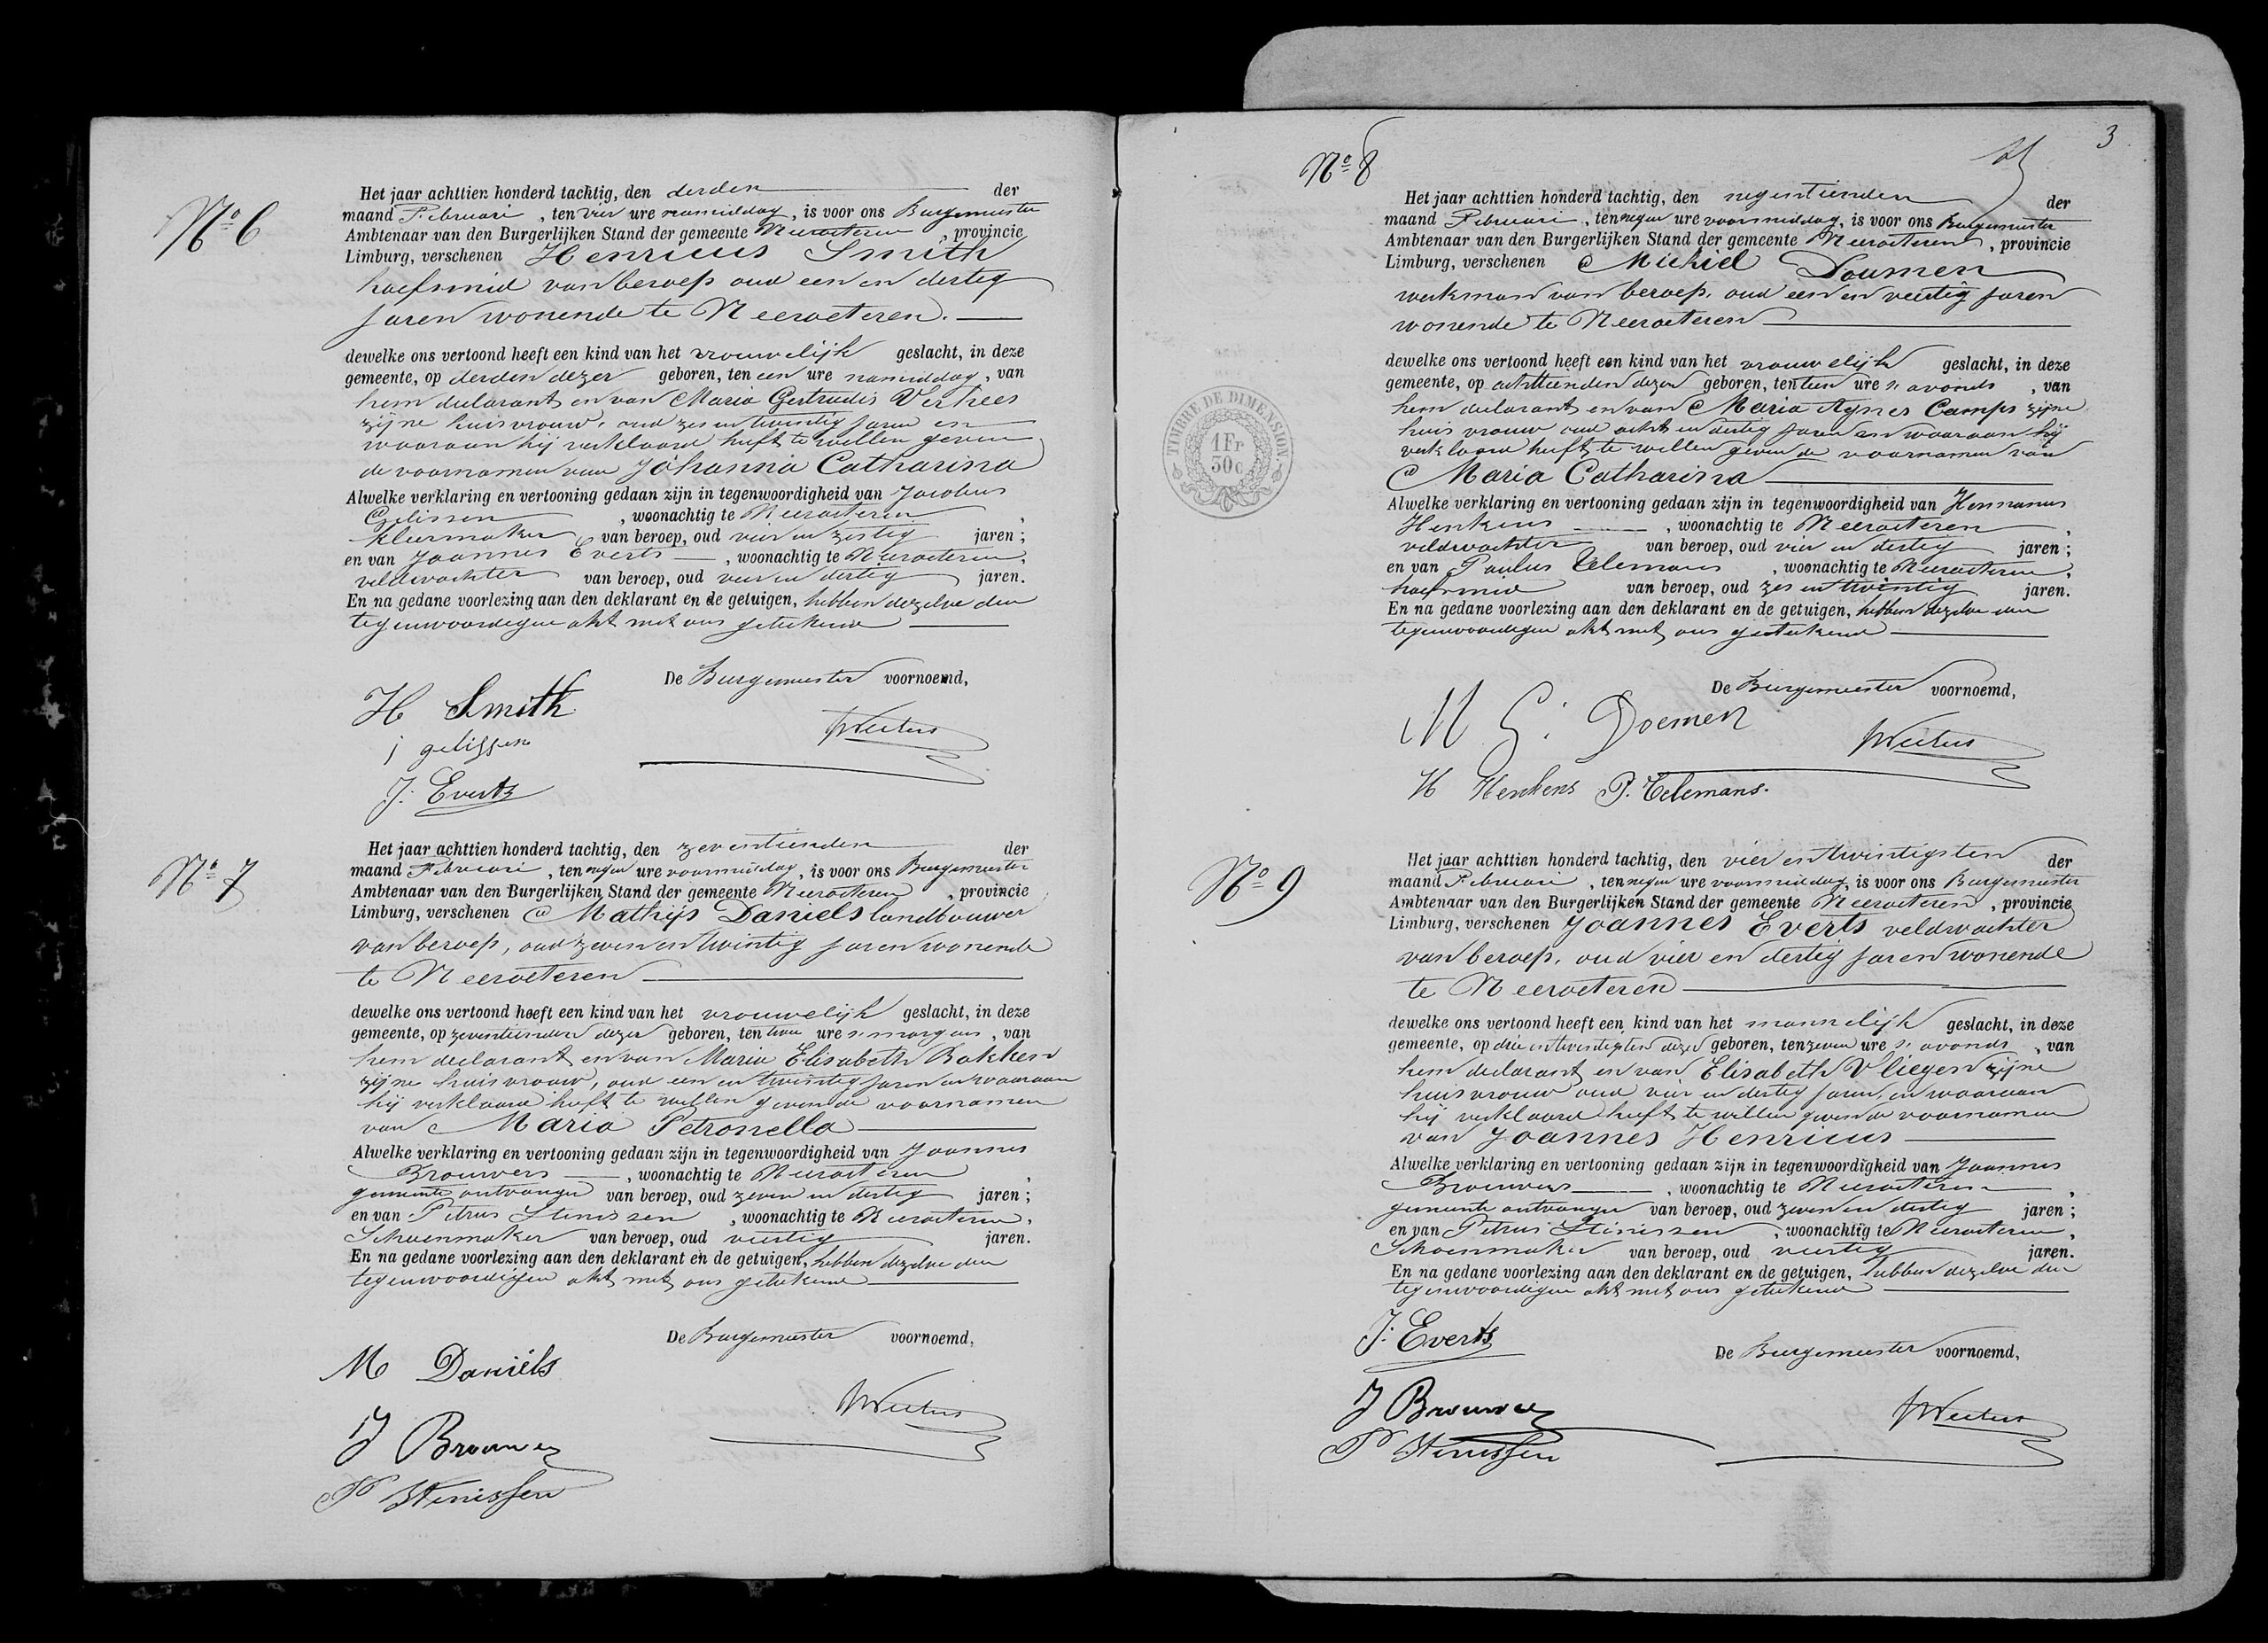 No 6
Het jaar achttien honderd tachtig, den derden der
maand Februari, ten vier ure namiddag, is voor ons Burgemeester
Ambtenaar van den Burgerlijken Stand der gemeente Neeroeteren, provincie
Limburg, verschenen Henricus Smith
hoefsmid van beroep oud een en dertig
jaren wonende te Neeroeteren.
dewelke ons vertoond heeft een kind van het vrouwelijk geslacht, in deze
gemeente, op derden dezer geboren, ten een ure namiddag, van
hem declarant en van Maria Gertrudis Verhees
zijne huisvrouw, oud zes en twintig jaren en
waaraan hij verklaard heeft te willen geven
de voornamen van Johanna Catharina
Alwelke verklaring en vertooning gedaan zijn in tegenwoordigheid van Jacobus
Gelissen, woonachtig te Neeroeteren,
kleermaker van beroep, oud vier en zestig jaren;
en van Joannes Everts, woonachtig te Neeroeteren,
veldwachter van beroep, oud vier en dertig jaren.
En na gedane voorlezing aan den deklarant en de getuigen, hebben dezelve den
tegenwoordigen akt met ons geteekend
De Burgemeester voornoemd,
H Smith
j gelissen
J. Everts
No 7
Het jaar achttien honderd tachtig, den zeventienden der
maand Februari, ten negen ure voormiddag, is voor ons Burgemeester
Ambtenaar van den Burgerlijken Stand der gemeente Neeroeteren, provincie
Limburg, verschenen Mathijs Daniels landbouwer
van beroep, oud zeven en twintig jaren wonende
te Neeroeteren
dewelke ons vertoond heeft een kind van het vrouwelijk geslacht, in deze
gemeente, op zeventienden dezer geboren, ten twee ure 's morgens, van
hem declarant en van Maria Elisabeth Bakken
zijne huisvrouw, oud een en twintig jaren en waaraan
hij verklaard heeft te willen geven de voornamen
van Maria Petronella
Alwelke verklaring en vertooning gedaan zijn in tegenwoordigheid van Joannes
Brouwers, woonachtig te Neeroeteren,
gemeente ontvanger van beroep, oud zeven en dertig jaren;
en van Petrus Stinissen, woonachtig te Neeroeteren,
Schoenmaker van beroep, oud veertig jaren.
En na gedane voorlezing aan den deklarant en de getuigen, hebben dezelve den
tegenwoordigen akt met ons geteekend
De Burgemeester voornoemd,
M Daniëls
J Brouwers
P Stinissen
3
No 8
Het jaar achttien honderd tachtig, den negentienden der
maand Februari, ten negen ure voormiddag, is voor ons Burgemeester
Ambtenaar van den Burgerlijken Stand der gemeente Neeroeteren, provincie
Limburg, verschenen Michiel Doumen
werkman van beroep, oud een en veertig jaren
wonende te Neeroeteren
dewelke ons vertoond heeft een kind van het vrouwelijk geslacht, in deze
gemeente, op achttienden dezer geboren, ten tien ure 's avonds, van
hem declarant en van Maria Agnes Camps zijne
huisvrouw oud acht en dertig jaren en waaraan hij
verklaard heeft te willen geven de voornamen van
Maria Catharina
Alwelke verklaring en vertooning gedaan zijn in tegenwoordigheid van Hermanus
Henkens, woonachtig te Neeroeteren,
veldwachter van beroep, oud vier en dertig jaren;
en van Paulus Telemans, woonachtig te Neeroeteren,
hoefsmid van beroep, oud zes en twintig jaren.
En na gedane voorlezing aan den deklarant en de getuigen, hebben dezelve den
tegenwoordigen akt met ons geteekend
De Burgemeester voornoemd,
M G. Doemen
H Henkens P. Telemans.
TIMBRE DE DIMENSION
1 Fr
30c
No 9
Het jaar achttien honderd tachtig, den vier en twintigsten der
maand Februari, ten negen ure voormiddag, is voor ons Burgemeester
Ambtenaar van den Burgerlijken Stand der gemeente Neeroeteren, provincie
Limburg, verschenen Joannes Everts veldwachter
van beroep, oud vier en dertig jaren wonende
te Neeroeteren
dewelke ons vertoond heeft een kind van het mannelijk geslacht, in deze
gemeente, op drie en twintigsten dezer geboren, ten zeven ure 's avonds, van
hem declarant en van Elisabeth Vliegen zijne
huisvrouw oud vier en dertig jaren, en waaraan
hij verklaard heeft te willen geven de voornamen
van Joannes Henricus
Alwelke verklaring en vertooning gedaan zijn in tegenwoordigheid van Joannes
Brouwers, woonachtig te Neeroeteren,
gemeente ontvanger van beroep, oud zeven en dertig jaren;
en van Petrus Stinissen, woonachtig te Neeroeteren,
Schoenmaker van beroep, oud veertig jaren.
En na gedane voorlezing aan den deklarant en de getuigen, hebben dezelve den
tegenwoordigen akt met ons geteekend
De Burgemeester voornoemd,
J. Everts
J Brouwers
P Stinissen